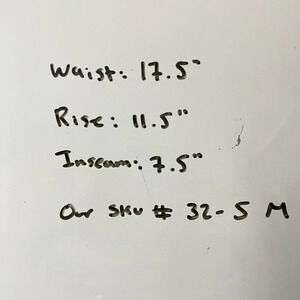 Waist: 17.5"
Rise: 11.5"
Inseam: 7.5"
Our SKU # 32-5 M